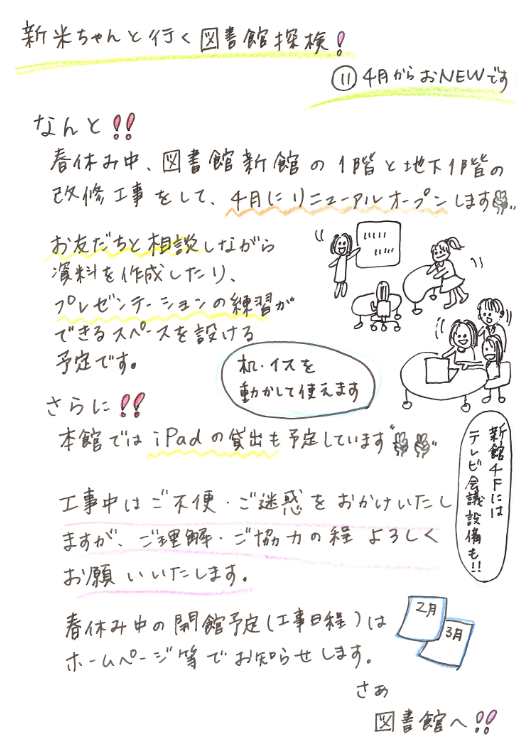 新米ちゃんと行く図書館探検!
⑪4月からおNEWです
なんと!!
春休み中、図書館新館の1階と地下1階の
改修工事をして、4月にリニューアルオープンします
お友だちと相談しながら
資料を作成したり、
プレゼンテーションの練習が
できるスペースを設ける
予定です。
机・イスを
動かして使えます
さらに!!
本館ではiPadの貸出も予定しています
新館4Fには
テレビ会議設備も!!
工事中はご不便・ご迷惑をおかけいたし
ますが、ご理解・ご協力の程よろしく
お願いいたします。
春休み中の開館予定(工事日程)は
ホームページ等でお知らせします。
2月
3月
さぁ
図書館へ!!